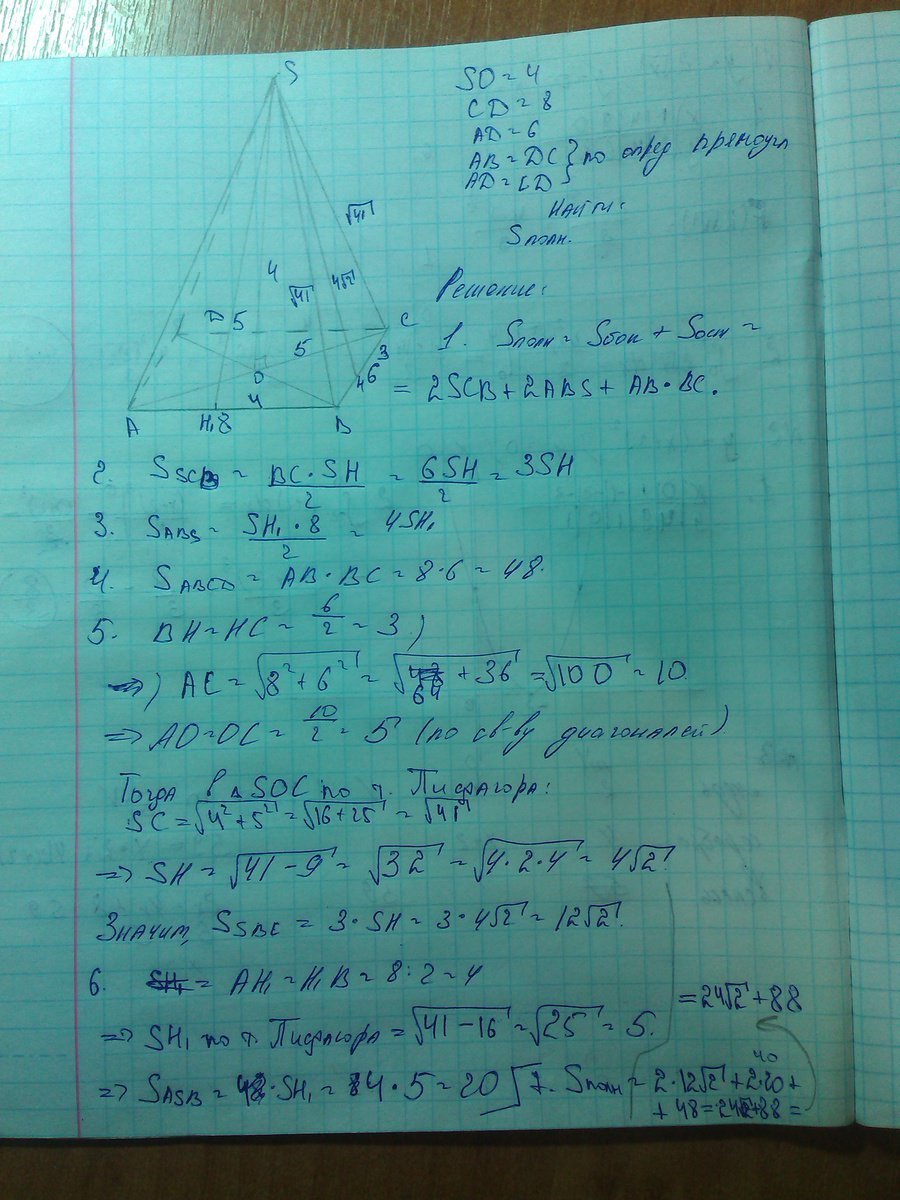 S
SO = 4
CD = 8
AD = 6
AB = DC } по опред прямоугл
AD = CD
Найти:
Sполн.
√41
4
√41
4√2
D
5
C
5
3
O
6
4
4
A
H₁
8
B
Решение:
1. Sполн = Sбок + Sосн =
= 2SCB + 2ABS + AB · BC.
2. S SCB = BC · SH / 2 = 6SH / 2 = 3SH
3. S ABS = SH₁ · 8 / 2 = 4SH₁
4. S ABCD = AB · BC = 8 · 6 = 48.
5. BH = HC = 6/2 = 3 )
) AC = √(8² + 6²) = √(64 + 36) = √100 = 10
=> AO = OC = 10/2 = 5 (по св-ву диагоналей)
Тогда в △SOC по т. Пифагора:
SC = √(4² + 5²) = √(16 + 25) = √41
=> SH = √(41 − 9) = √32 = √(4 · 2 · 4) = 4√2.
Значит, S SBC = 3 · SH = 3 · 4√2 = 12√2.
6. SH₁ = AH₁ = H₁B = 8 : 2 = 4
=> SH₁ по т. Пифагора = √(41 − 16) = √25 = 5.
=> S ASB = 4 · SH₁ = 4 · 5 = 20
7. Sполн = 2 · 12√2 + 2·20 +
40
+ 48 = 24√2 + 88 =
= 24√2 + 88